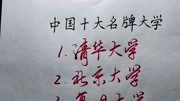 中国十大名牌大学
1.清华大学
2.北京大学